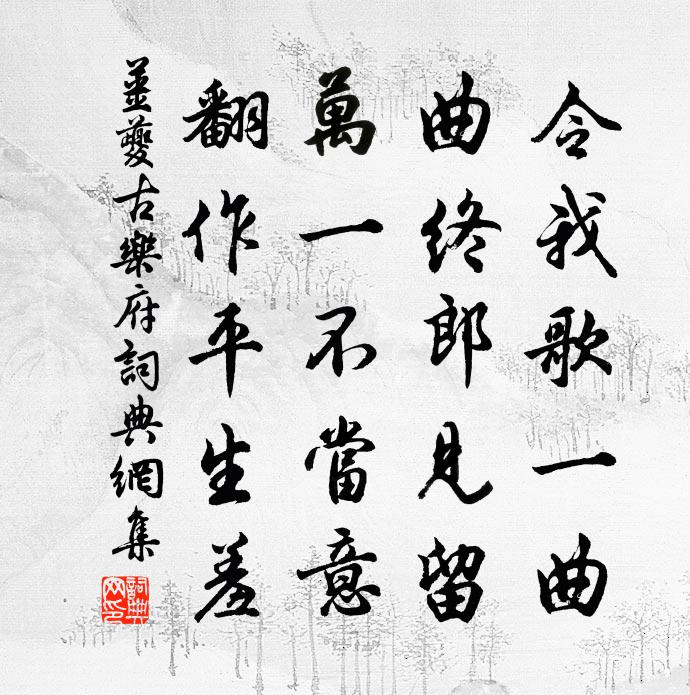 令我歌一曲
曲終郎見留
萬一不當意
翻作平生羞
姜夔古樂府詞典網集
詞典